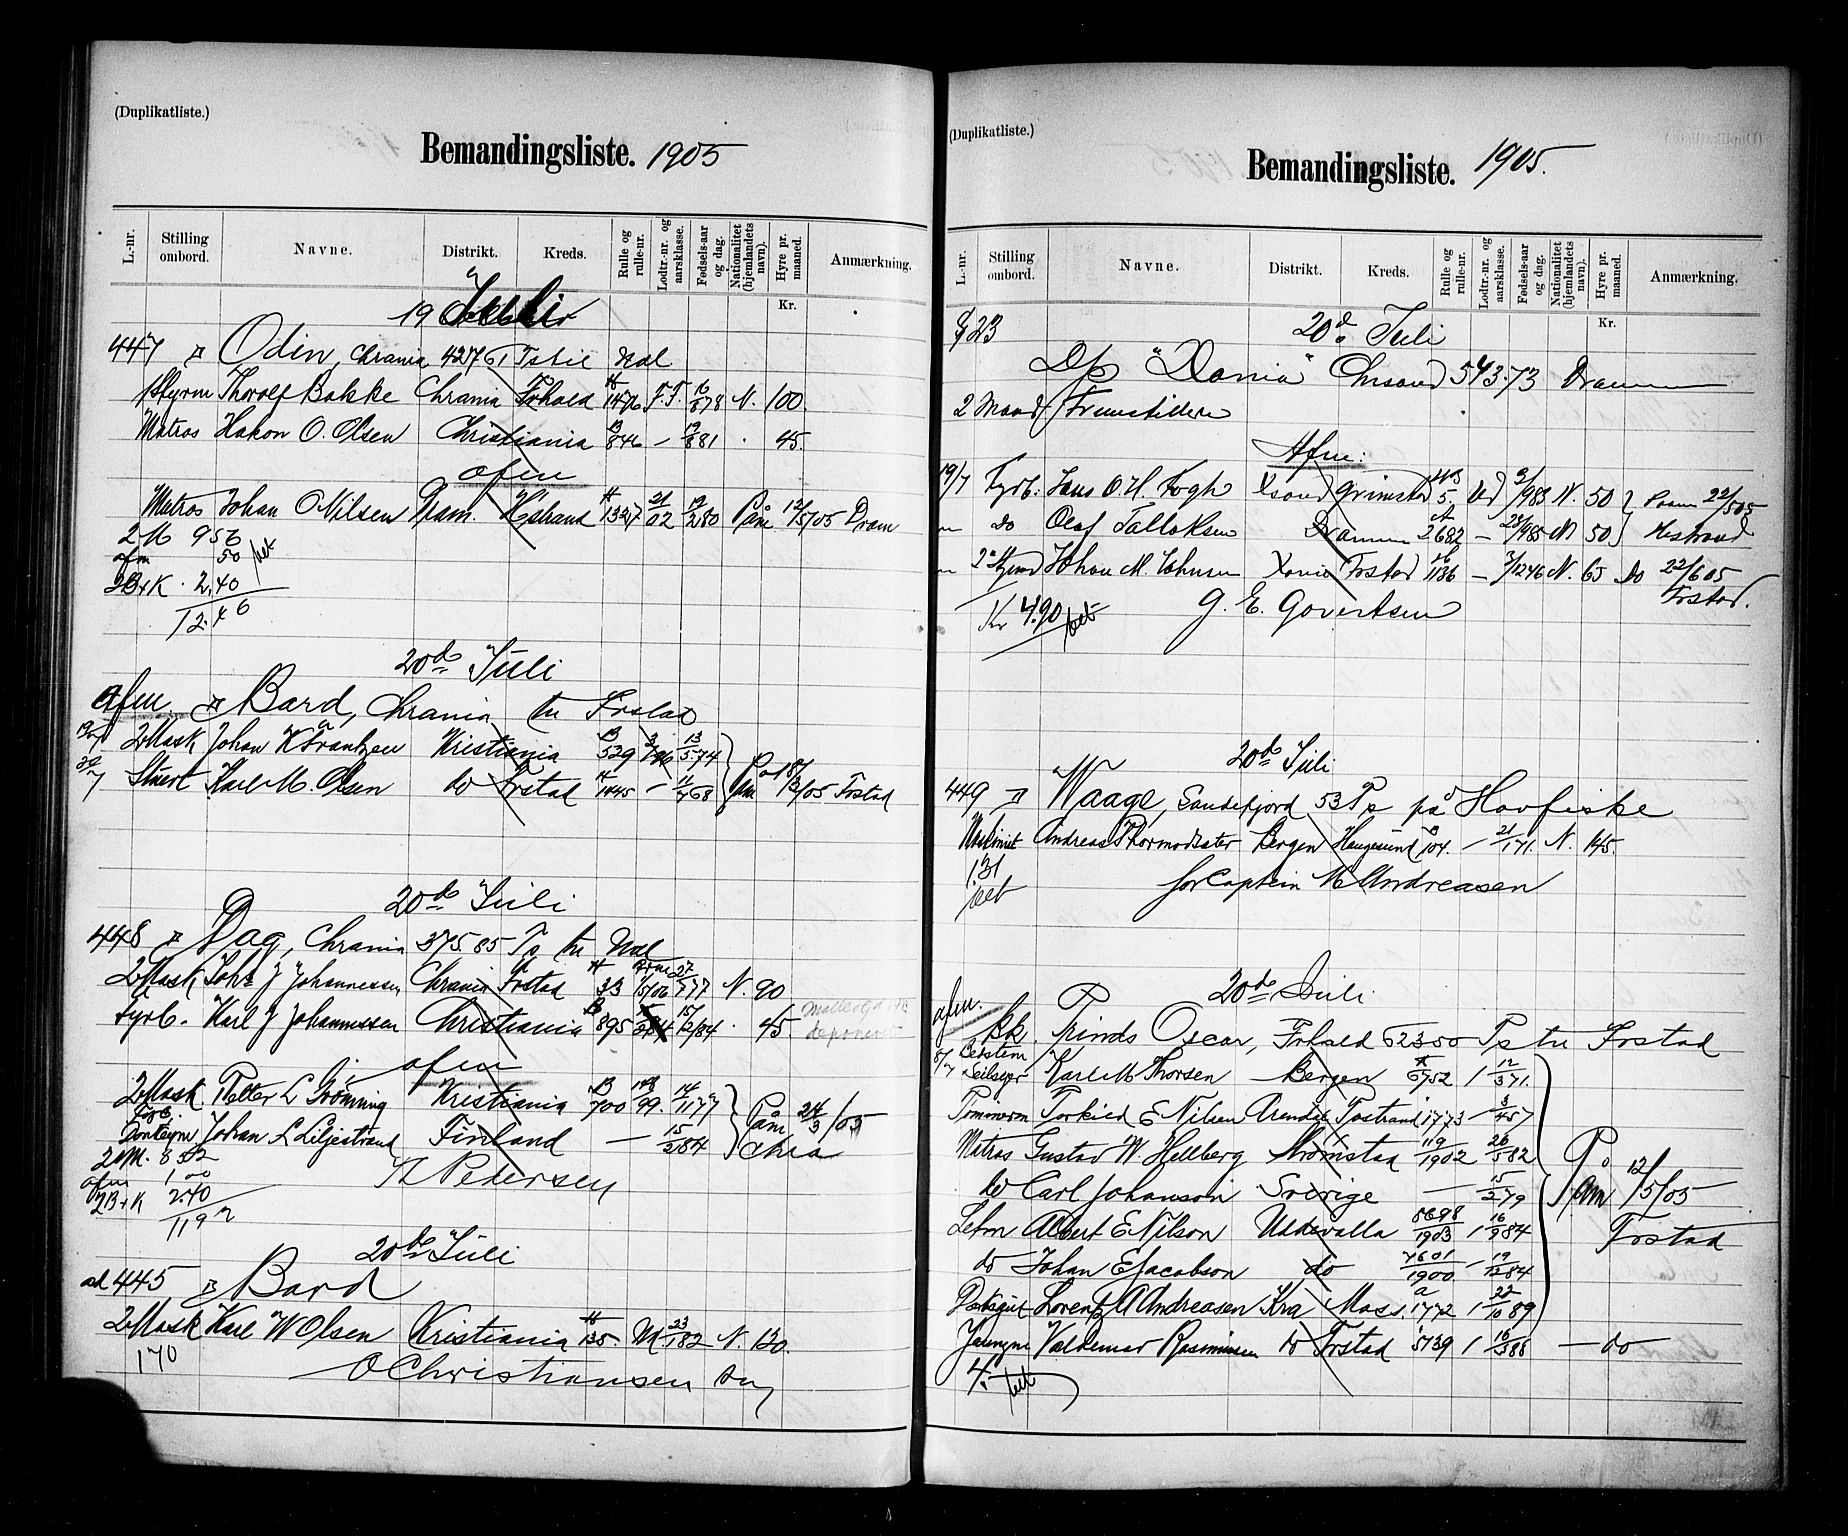 (Duplikatliste.)
Bemandingsliste. 1905
L.-nr. Stilling ombord. Navne. Distrikt. Kreds. Rulle og rulle-nr. Lodtr.-nr. og aarsklasse. Fødsels-aar og dag. Nationalitet (hjemlandets navn). Hyre pr. maaned. Anmærkning.
Kr.
19 Juli
447 Odin, Chrania 427 61 Ts til
1 Styrm Thorolf Bakke Chrania F.hald 1476 F.F. 16/8 78 N. 100.
Matros Hakon O. Olsen Christiania 846 — 19/8 81 45.
afm
Matros Johan O Nilsen Dram. H.strand 1327 21/02 19/2 80 Påm 12/5 05 Dram
2 M 956
afm 50 bet
2B+K. 2,40
12.46
20de Juli
afm. Bard, Chrania til Frstad
2 Mask Johan K Frantzen Kristiania 529 13/5 74
Stuert Karl M. Olsen do Frstad 1445 — 11/4 68 Påm 18/3/05 Frstad
20de Juli
448 Dag, Chrania 375.85 Ts til
2 Mask Johs J Johannessen Chrania Frstad 33 27/7 77 N. 90
Fyrb. Karl J Johannessen Christiania 895 15/12/84 45.
afm
2 Mask Petter L Grönning Kristiania 700 99. 14/11 77 Påm 24/3/05
Johan L Liljestrand Finland — 15/2 84 Chria
2 M. 852
afm 1.00
2B+K 2.40
K Pedersen
20de Juli
ad 445 Bard
2 Mask Karl W Olsen Kristiania 135. M 23/1 82 N. 120.
170
O Christiansen
(Duplikatliste.)
Bemandingsliste. 1905.
L.-nr. Stilling ombord. Navne. Distrikt. Kreds. Rulle og rulle-nr. Lodtr.-nr. og aarsklasse. Fødsels-aar og dag. Nationalitet (hjemlandets navn). Hyre pr. maaned. Anmærkning.
Kr.
§ 23 20de Juli
D/s "Dania" Chrsand 543.73 Drammen
2 Mand Fremstillere
Afm:
19/7 Fyrb. Jens O. H. Fogh Xsand Grimstad 5. Ud 2/9 83 N. 50 Dram 22/5 05
" do Olaf Tallaksen Drammen 2682 — 28/9 85 N 50 Hestrand
" 2 Styrmd Johan M. Johnsen Xania Frstad 1186 — 7/12 46 N. 65 Do 22/6 05
Frstad.
Kr 4.90 bet G. E. Govertsen
20de Juli
449 Waage, Sandefjord 53 Ts på Havfiske
Maskinist Andreas Thormodsæter Bergen Haugesund 104. — 21/1 71. N. 145.
1.31
bet for Captein M Andreasen
20de Juli
afm. Prinds Oscar, Frhald 2350 Ts til Frstad
8/7 Karl M Thorsen Bergen 6752 1 12/3 71.
Tömmerm Torkild E Nilsen Arendal Tvstrand 1773 — 3/4 57
Matros Gustav W. Hellberg Strömstad 119/1902 26/5 82
do Carl Johanson Sverige — 15/2 79 Påm 12/5/05
Letm Albert E Nilson Uddevalla 8698/1903 1 16/9 84 Frstad
do Johan E Jacobson do 7601/1900 — 19/12 84
Lorentz A Andreasen Kra Moss. 1772 1 22/10 89
Jungm Valdemar Rasmussen do Frstad 5739 1 16/3 88 — do
4. bet